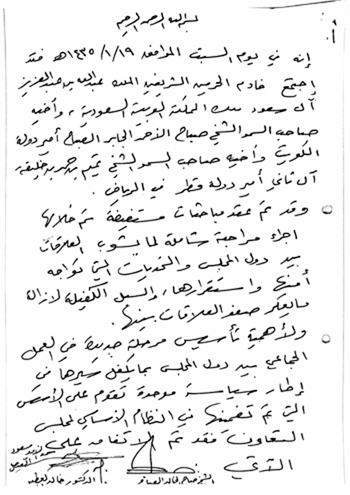 بسم الله الرحمن الرحيم
إنه في يوم السبت الموافق ١٤٣٥/١/١٩هـ فقد
إجتمع خادم الحرمين الشريفين الملك عبدالله بن عبدالعزيز
آل سعود ملك المملكة العربية السعودية، وأخيه
صاحب السمو الشيخ صباح الأحمد الجابر الصباح أمير دولة
الكويت وأخيه صاحب السمو الشيخ تميم بن حمد بن خليفه
آل ثاني أمير دولة قطر في الرياض.
وقد تم عقد مباحثات مستفيضة تم خلالها
اجراء مراجعة شاملة لما يشوب العلاقات
بين دول المجلس والتحديات التي تواجه
أمنها واستقرارها، والسبل الكفيلة لازالة
مايعكر صفو العلاقات بينها.
ولأهمية تأسيس مرحلة جديدة في العمل
الجماعي بين دول المجلس بما يكفل سيرها في
إطار سياسة موحدة تقوم على الأسس
التي تم تضمينها في النظام الأساسي لمجلس
التعاون فقد تم الاتفاق على
الآتي
الشيخ صباح الخالد الصباح
الدكتور خالد العطيه
سعود الفيصل